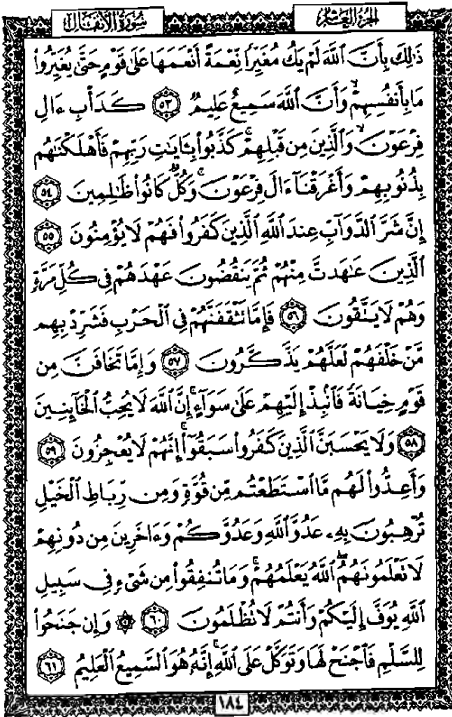 سُورَةُ الأَنفَالِ الجُزْءُ العَاشِرُ
ذَٰلِكَ بِأَنَّ ٱللَّهَ لَمْ يَكُ مُغَيِّرًا نِّعْمَةً أَنْعَمَهَا عَلَىٰ قَوْمٍ حَتَّىٰ يُغَيِّرُوا۟
مَا بِأَنفُسِهِمْ ۙ وَأَنَّ ٱللَّهَ سَمِيعٌ عَلِيمٌ ٥٣ كَدَأْبِ ءَالِ
فِرْعَوْنَ ۙ وَٱلَّذِينَ مِن قَبْلِهِمْ ۚ كَذَّبُوا۟ بِـَٔايَٰتِ رَبِّهِمْ فَأَهْلَكْنَٰهُم
بِذُنُوبِهِمْ وَأَغْرَقْنَآ ءَالَ فِرْعَوْنَ ۚ وَكُلٌّ كَانُوا۟ ظَٰلِمِينَ ٥٤
إِنَّ شَرَّ ٱلدَّوَآبِّ عِندَ ٱللَّهِ ٱلَّذِينَ كَفَرُوا۟ فَهُمْ لَا يُؤْمِنُونَ ٥٥
ٱلَّذِينَ عَٰهَدتَّ مِنْهُمْ ثُمَّ يَنقُضُونَ عَهْدَهُمْ فِى كُلِّ مَرَّةٍ
وَهُمْ لَا يَتَّقُونَ ٥٦ فَإِمَّا تَثْقَفَنَّهُمْ فِى ٱلْحَرْبِ فَشَرِّدْ بِهِم
مَّنْ خَلْفَهُمْ لَعَلَّهُمْ يَذَّكَّرُونَ ٥٧ وَإِمَّا تَخَافَنَّ مِن
قَوْمٍ خِيَانَةً فَٱنۢبِذْ إِلَيْهِمْ عَلَىٰ سَوَآءٍ ۚ إِنَّ ٱللَّهَ لَا يُحِبُّ ٱلْخَآئِنِينَ
٥٨ وَلَا يَحْسَبَنَّ ٱلَّذِينَ كَفَرُوا۟ سَبَقُوٓا۟ ۚ إِنَّهُمْ لَا يُعْجِزُونَ ٥٩
وَأَعِدُّوا۟ لَهُم مَّا ٱسْتَطَعْتُم مِّن قُوَّةٍ وَمِن رِّبَاطِ ٱلْخَيْلِ
تُرْهِبُونَ بِهِۦ عَدُوَّ ٱللَّهِ وَعَدُوَّكُمْ وَءَاخَرِينَ مِن دُونِهِمْ
لَا تَعْلَمُونَهُمُ ٱللَّهُ يَعْلَمُهُمْ ۚ وَمَا تُنفِقُوا۟ مِن شَىْءٍ فِى سَبِيلِ
ٱللَّهِ يُوَفَّ إِلَيْكُمْ وَأَنتُمْ لَا تُظْلَمُونَ ٦٠ ۞ وَإِن جَنَحُوا۟
لِلسَّلْمِ فَٱجْنَحْ لَهَا وَتَوَكَّلْ عَلَى ٱللَّهِ ۚ إِنَّهُۥ هُوَ ٱلسَّمِيعُ ٱلْعَلِيمُ ٦١
١٨٤